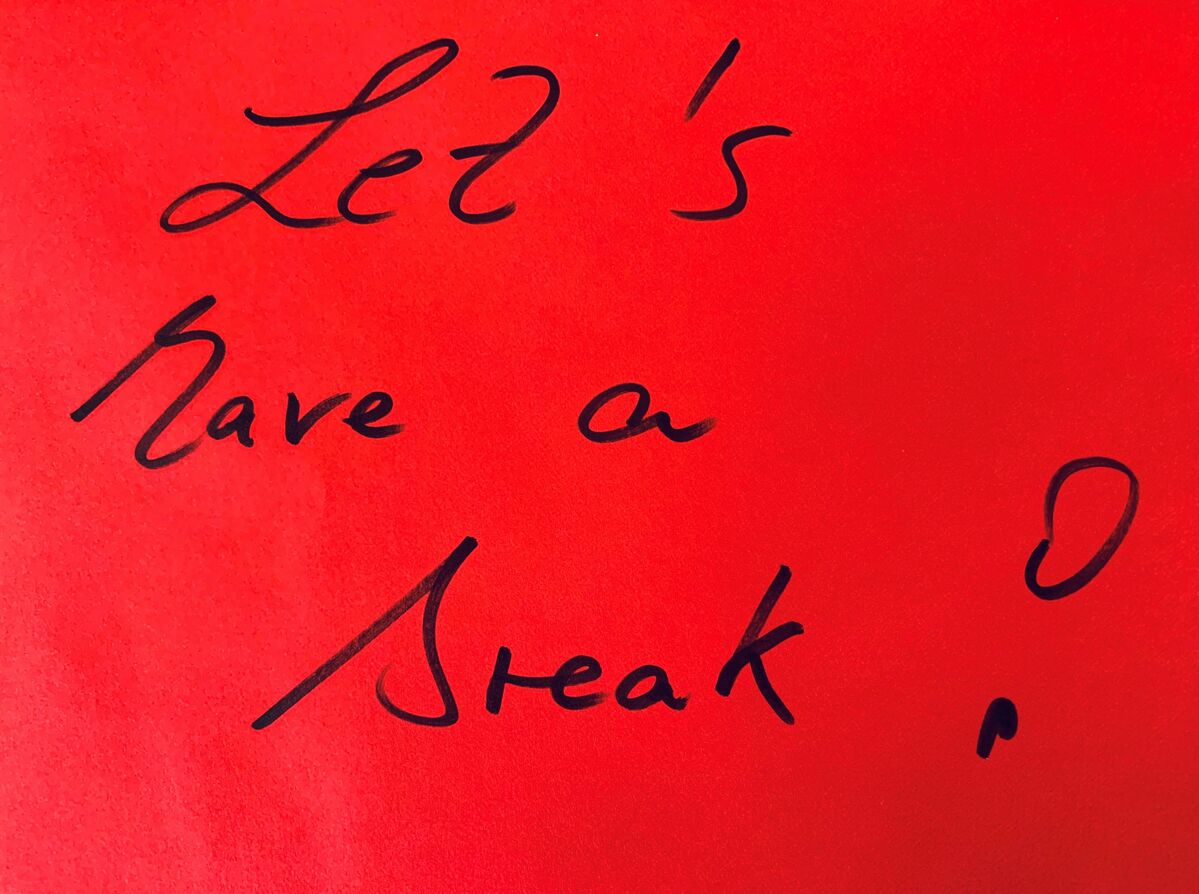 Let's
have a
break !